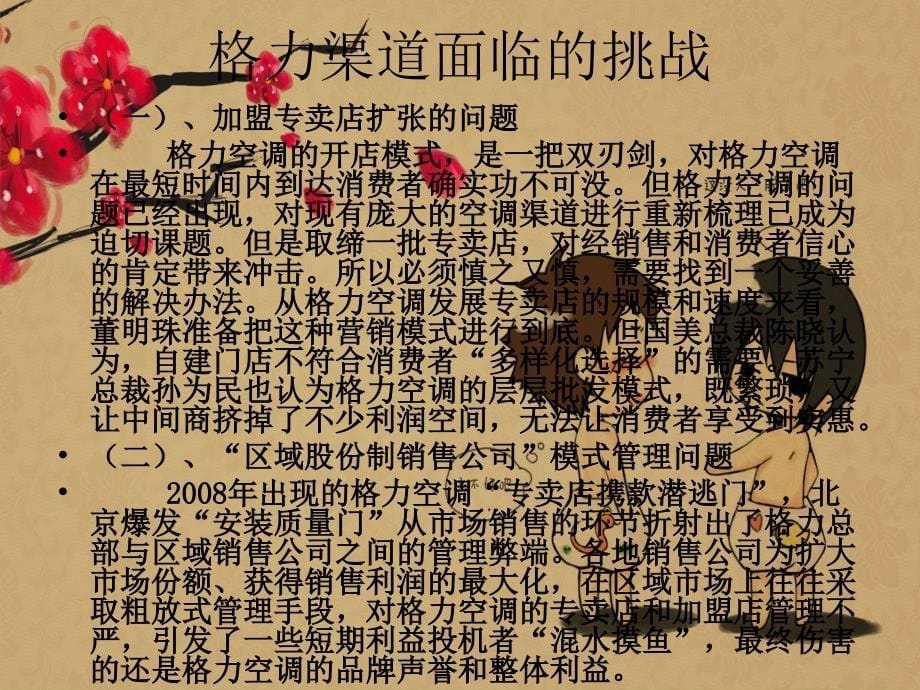 格力渠道面临的挑战
• （一）、加盟专卖店扩张的问题
• 格力空调的开店模式，是一把双刃剑，对格力空调
在最短时间内到达消费者确实功不可没。但格力空调的问
题已经出现，对现有庞大的空调渠道进行重新梳理已成为
迫切课题。但是取缔一批专卖店，对经销售和消费者信心
的肯定带来冲击。所以必须慎之又慎，需要找到一个妥善
的解决办法。从格力空调发展专卖店的规模和速度来看，
董明珠准备把这种营销模式进行到底。但国美总裁陈晓认
为，自建门店不符合消费者“多样化选择”的需要。苏宁
总裁孙为民也认为格力空调的层层批发模式，既繁琐，又
让中间商挤掉了不少利润空间，无法让消费者享受到实惠。
• （二）、“区域股份制销售公司”模式管理问题
• 2008年出现的格力空调“专卖店携款潜逃门”，北
京爆发“安装质量门”从市场销售的环节折射出了格力总
部与区域销售公司之间的管理弊端。各地销售公司为扩大
市场份额、获得销售利润的最大化，在区域市场上往往采
取粗放式管理手段，对格力空调的专卖店和加盟店管理不
严，引发了一些短期利益投机者“混水摸鱼”，最终伤害
的还是格力空调的品牌声誉和整体利益。